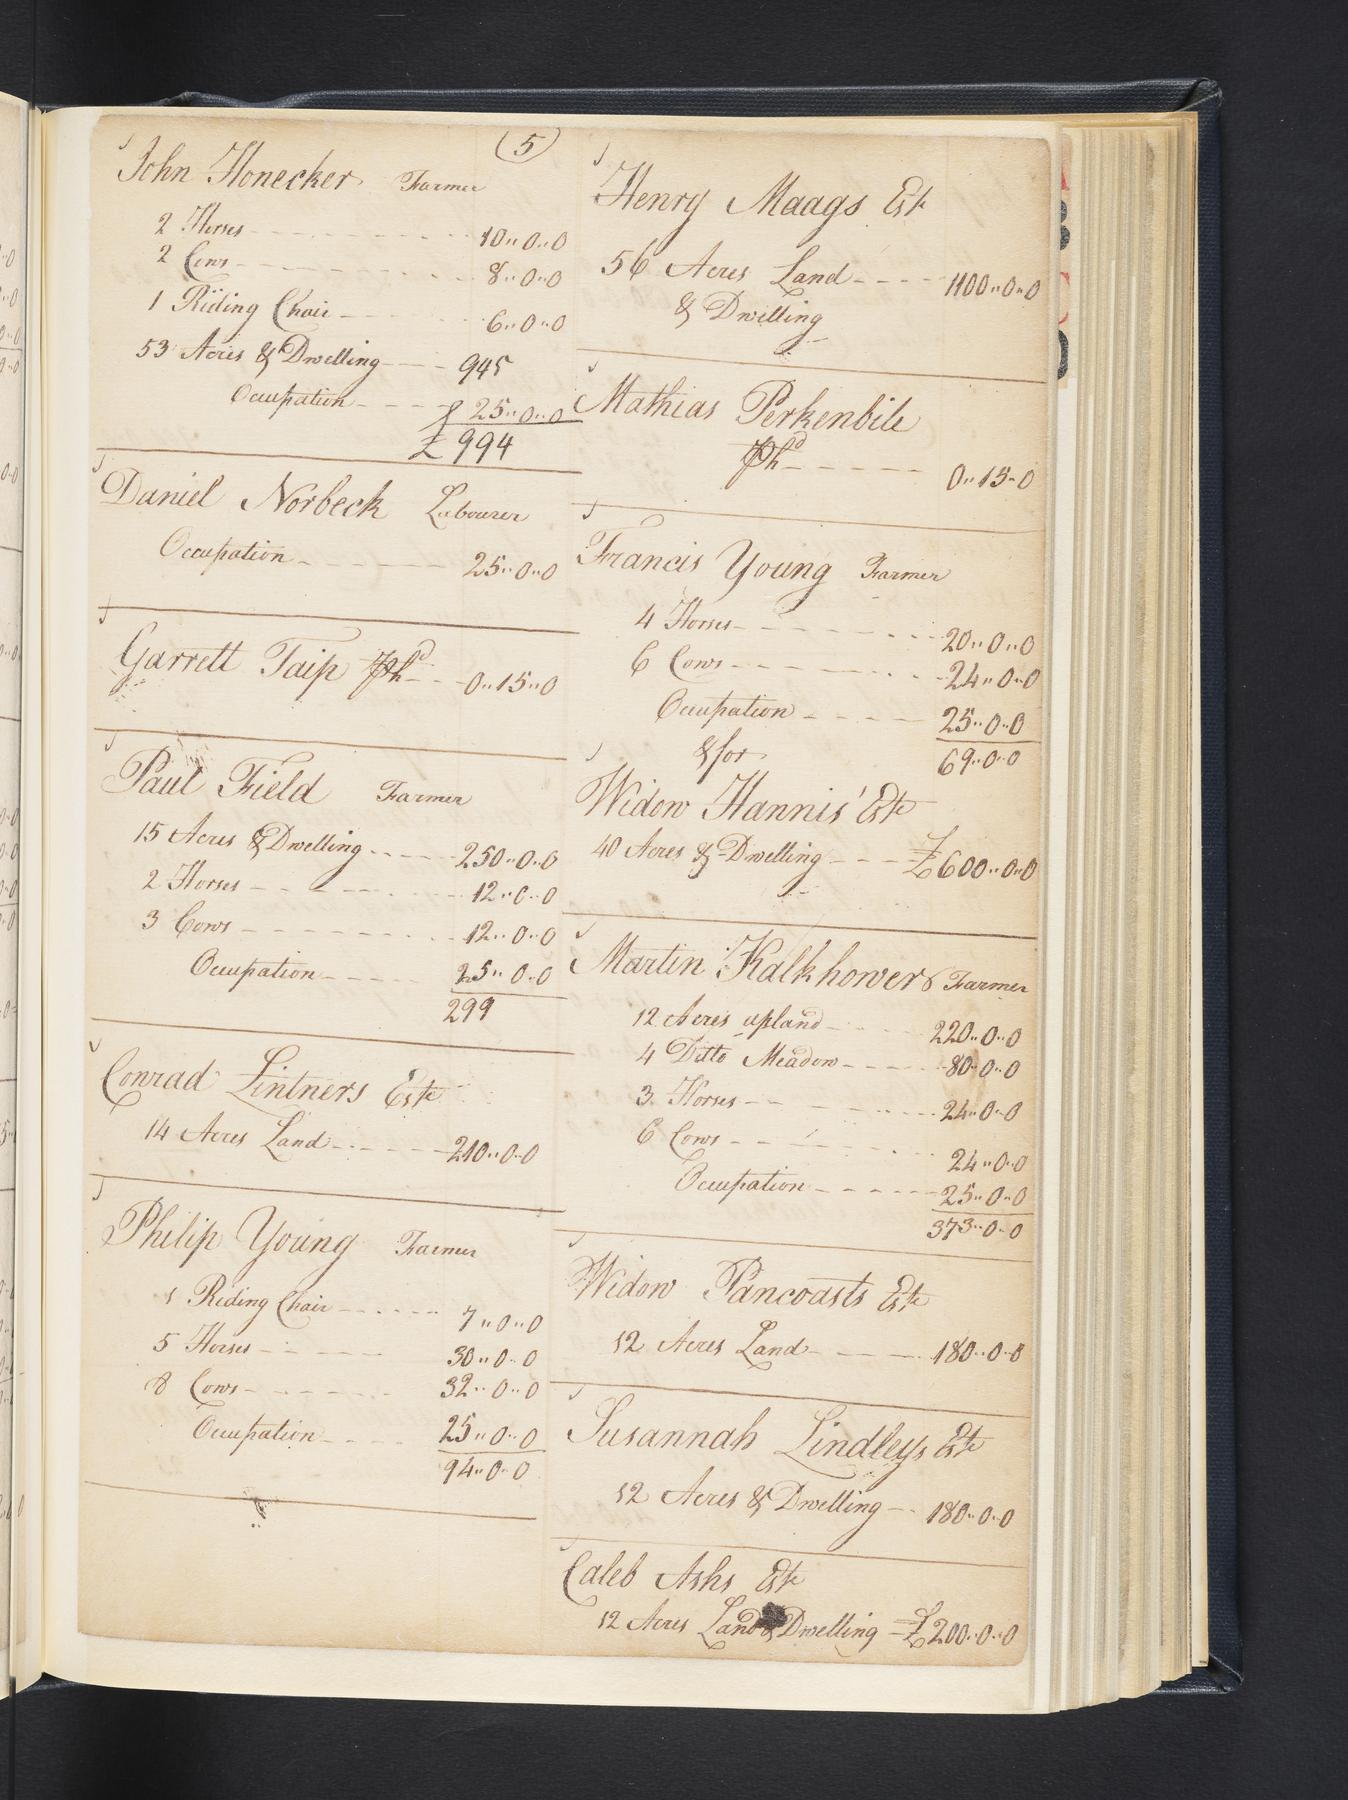 5
John Honecker Farmer
2 Horses 10..0..0
2 Cows 8..0..0
1 Riding Chair 6..0..0
53 Acres & Dwelling 945
Occupation 25..0..0
£ 994
Daniel Norbeck Labourer
Occupation 25..0..0
Garrett Taip Ph^d 0..15..0
Paul Field Farmer
15 Acres & Dwelling 250..0..0
2 Horses 12..0..0
3 Cows 12..0..0
Occupation 25..0..0
299
Conrad Lintners Est^e
14 Acres Land 210..0..0
Philip Young Farmer
1 Riding Chair 7..0..0
5 Horses 30..0..0
8 Cows 32..0..0
Occupation 25..0..0
94..0..0
Henry Maags Est^e
56 Acres Land 1100..0..0
& Dwelling
Mathias Perkenbile
Ph^d 0..15..0
Francis Young Farmer
4 Horses 20..0..0
6 Cows 24..0..0
Occupation 25..0..0
&for 69..0..0
Widow Hannis' Est^e
40 Acres & Dwelling £600..0..0
Martin Kalkhower Farmer
12 Acres upland 220..0..0
4 Ditto Meadow 80..0..0
3 Horses 24..0..0
6 Cows 24..0..0
Occupation 25..0..0
373..0..0
Widow Pancoasts Est^e
12 Acres Land 180..0..0
Susannah Lindleys Est^e
12 Acres & Dwelling 180..0..0
Caleb Ashs Est^e
12 Acres Land & Dwelling £200..0..0